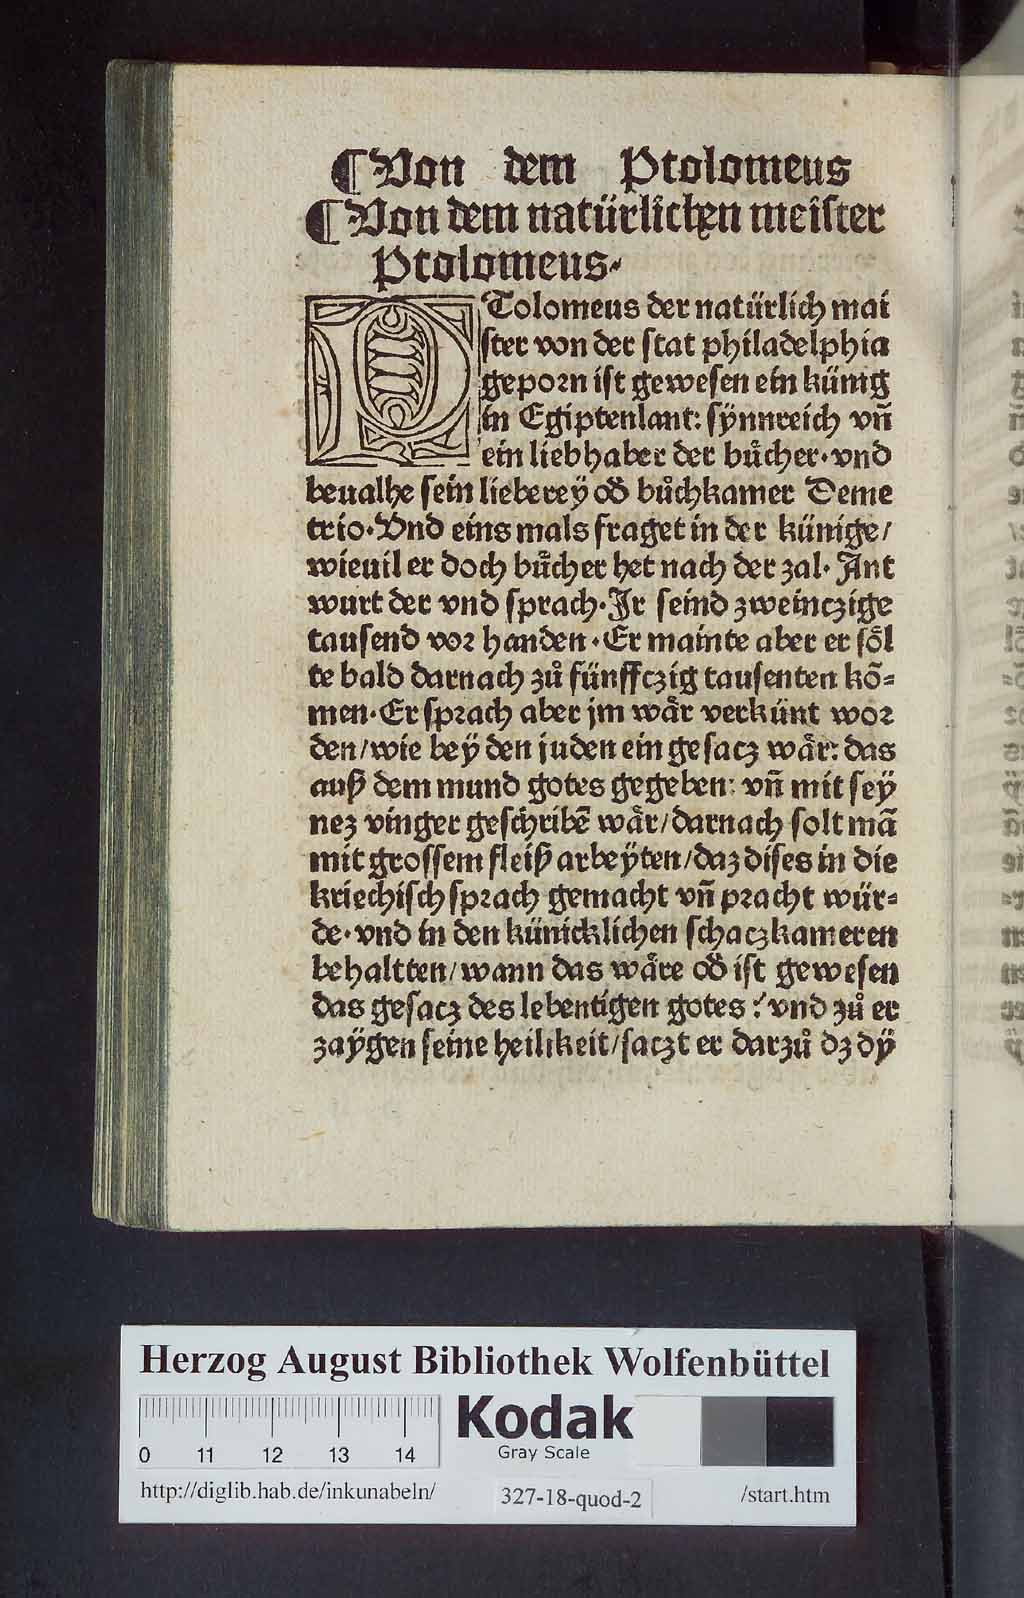 ¶ Von dem Ptolomeus
¶ Von dem natürlichen meister
Ptolomeus.
PTolomeus der natürlich mai
ster von der stat philadelphia
geporn ist gewesen ein künig
in Egiptenlant: sÿnnreich vn̄
ein liebhaber der bůcher. vnd
beualhe sein lieberey od̕ bůchkamer Deme
trio. Vnd eins mals fraget in der künige/
wieuil er doch bůcher het nach der zal. Ant
wurt der vnd sprach. Ir seind zweinczige
tausend vor handen. Er mainte aber er soͤl
te bald darnach zů fünffczig tausenten kō⸗
men. Er sprach aber jm waͤr verkünt wor
den/ wie beÿ den juden ein gesacz waͤr: das
auß dem mund gotes gegeben: vn̄ mit seÿ
nez vinger geschribē waͤr/ darnach solt mā
mit grossem fleiß arbeÿten/ daz dises in die
kriechisch sprach gemacht vn̄ pracht wür⸗
de. vnd in den künicklichen schaczkameren
behaltten/ wann das waͤre od̕ ist gewesen
das gesacz des lebentigen gotes: vnd zů er
zaÿgen seine heilikeit/ saczt er darzů dz dÿ
Herzog August Bibliothek Wolfenbüttel
0 11 12 13 14
Kodak
Gray Scale
http://diglib.hab.de/inkunabeln/ 327-18-quod-2 /start.htm